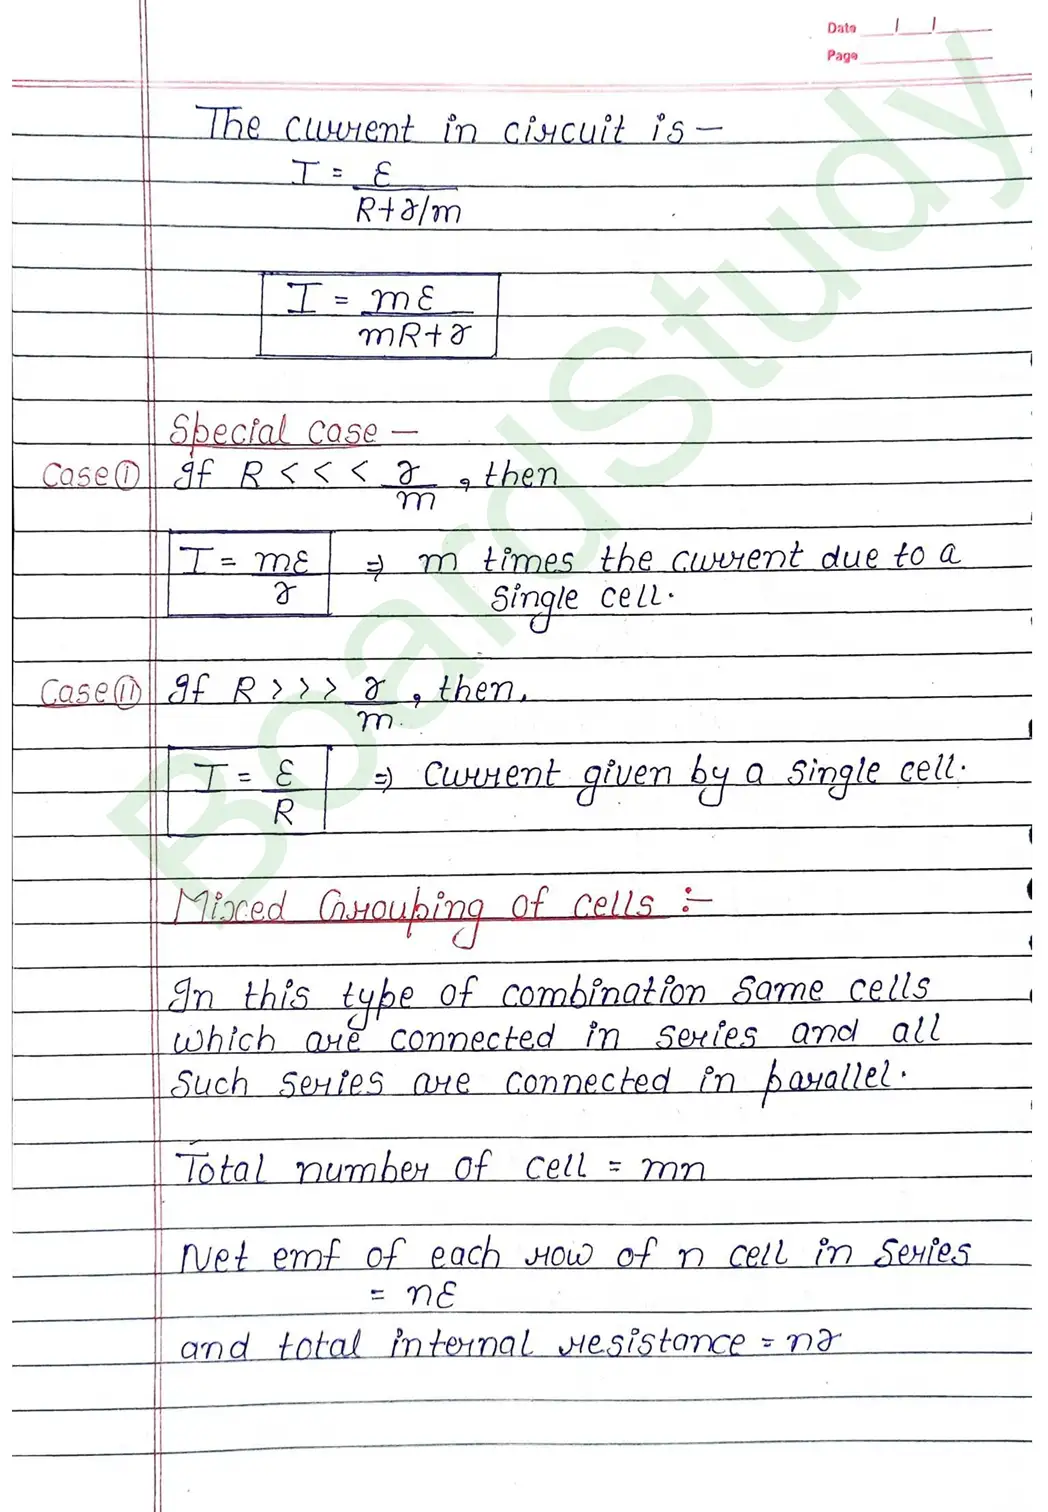 Date / /
Page
The current in circuit is —
I = ε
R+r/m
I = mε
mR+r
Special case —
Case (i) If R < < < r/m, then
I = mε/r ⇒ m times the current due to a
single cell.
Case (ii) If R > > > r/m, then,
I = ε/R ⇒ Current given by a single cell.
Mixed Grouping of cells :-
In this type of combination same cells
which are connected in series and all
such series are connected in parallel.
Total number of cell = mn
Net emf of each row of n cell in series
= nε
and total internal resistance = nr
BoardStudy